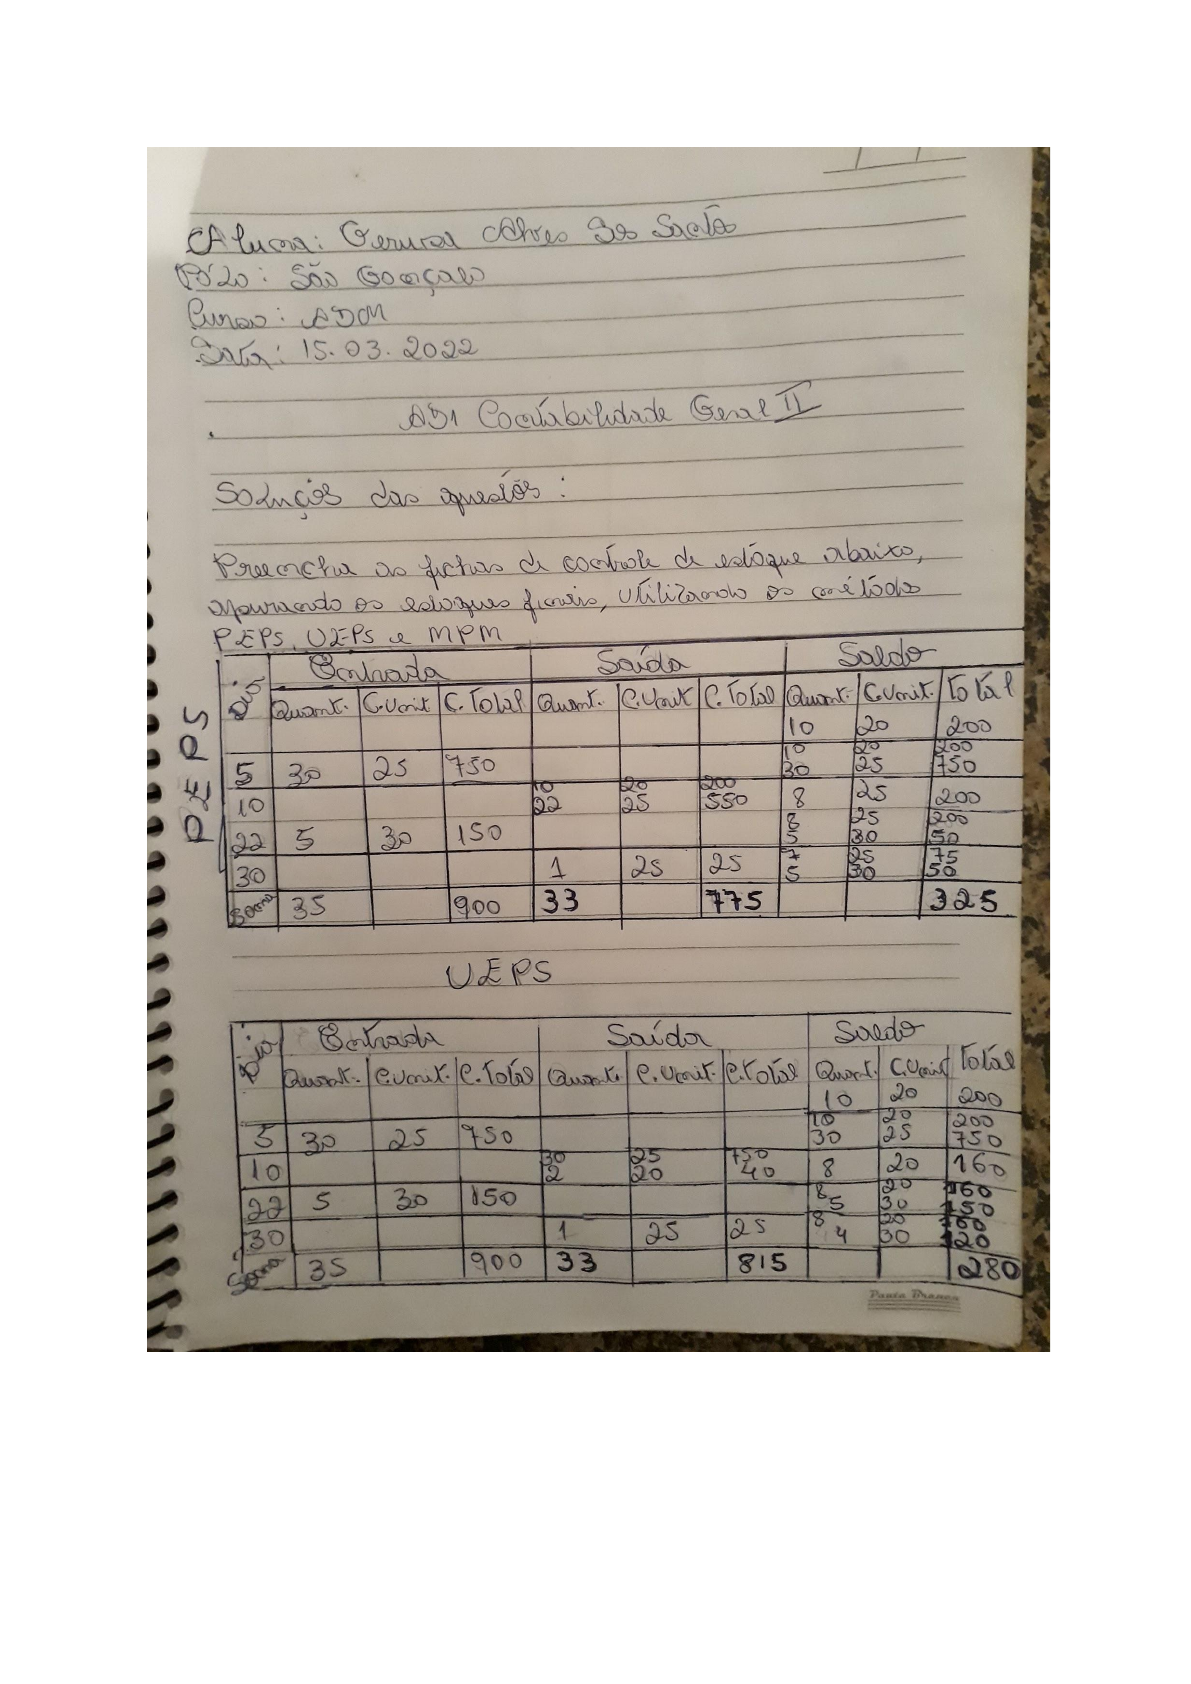 Aluna: Gerusa Alves Dos Santos
Pólo: São Gonçalo
Curso: ADM
Data: 15.03.2022
AD1 Contabilidade Geral II
Soluções das questões:
Preencha as fichas de controle de estoque abaixo,
apurando os estoques finais, utilizando os métodos
PEPS, UEPS e MPM
PEPS
Dia Entrada Saída Saldo
Quant. C.Unit C.Total Quant. C.Unit C.Total Quant. C.Unit. Total
10 20 200
10 20 200
5 30 25 750 30 25 750
10 20 200
10 22 25 550 8 25 200
8 25 200
22 5 30 150 5 30 50
7 25 75
30 1 25 25 5 30 50
Soma 35 900 33 775 325
UEPS
Dia Entrada Saída Saldo
Quant. C.Unit. C.Total Quant. C.Unit. C.Total Quant. C.Unit Total
10 20 200
10 20 200
5 30 25 750 30 25 750
30 25 750
10 2 20 40 8 20 160
8 20 160
22 5 30 150 5 30 150
8 20 160
30 1 25 25 4 30 120
Soma 35 900 33 815 280
Pauta Branca